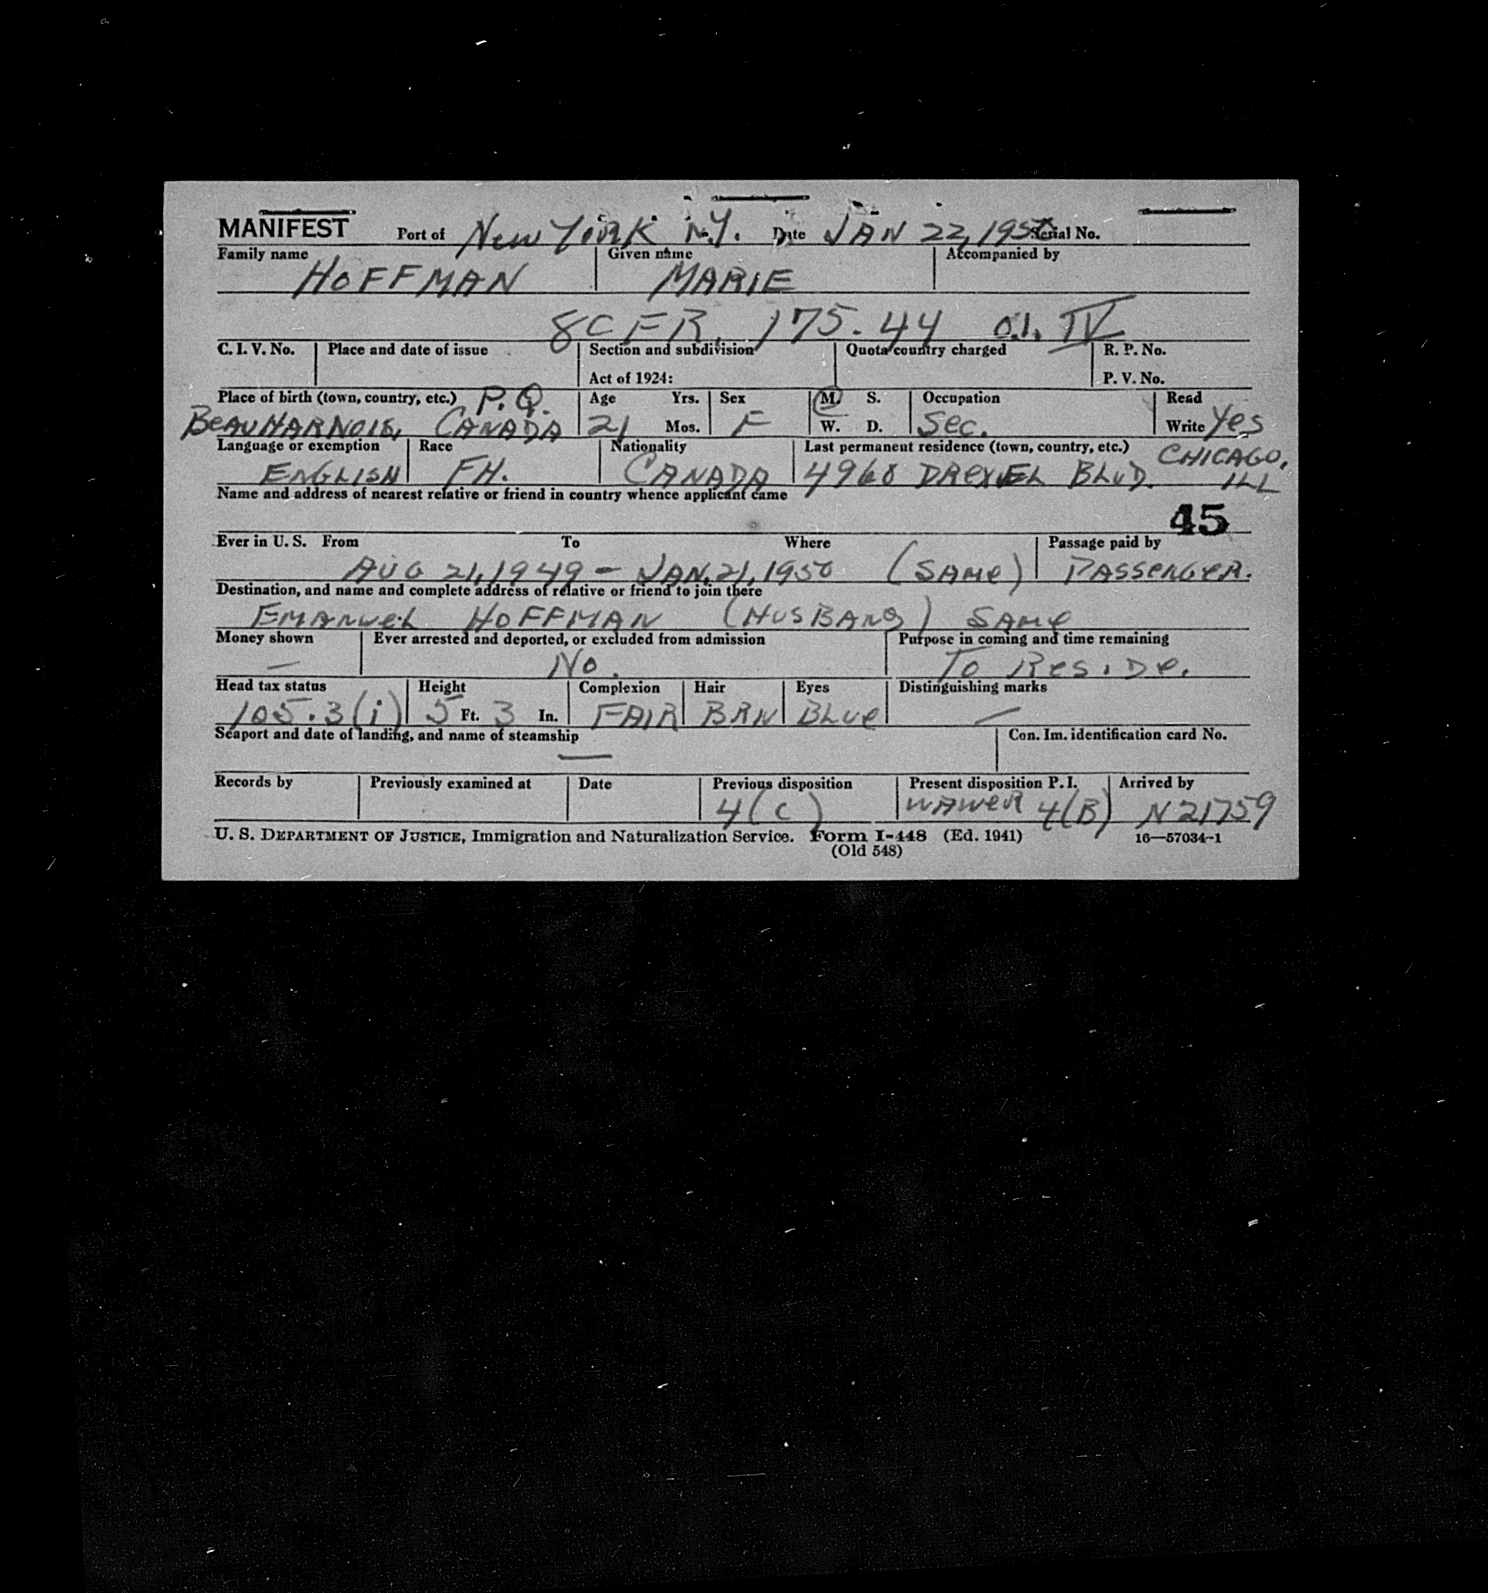 MANIFEST Port of New York N.Y. Date JAN 22, 1950 Serial No.
Family name Given name Accompanied by
HOFFMAN MARIE
8 CFR. 175.44 O.I. IV
C. I. V. No. Place and date of issue Section and subdivision Quota country charged R. P. No.
Act of 1924: P. V. No.
Place of birth (town, country, etc.) P.Q. Age Yrs. Sex M. S. Occupation Read
BEAUHARNOIS, CANADA 21 Mos. F W. D. Sec. Write Yes
Language or exemption Race Nationality Last permanent residence (town, country, etc.) CHICAGO,
ENGLISH FH. CANADA 4968 DREXEL BLVD. ILL
Name and address of nearest relative or friend in country whence applicant came
45
Ever in U. S. From To Where Passage paid by
AUG 21, 1949 - JAN. 21, 1950 (SAME) PASSENGER.
Destination, and name and complete address of relative or friend to join there
EMANUEL HOFFMAN (HUSBAND) SAME
Money shown Ever arrested and deported, or excluded from admission Purpose in coming and time remaining
— No. TO RESIDE.
Head tax status Height Complexion Hair Eyes Distinguishing marks
105.3(i) 5 Ft. 3 In. FAIR BRN BLUE —
Seaport and date of landing, and name of steamship Con. Im. identification card No.
—
Records by Previously examined at Date Previous disposition Present disposition P. I. Arrived by
4(C) WAWER 4(B) N21759
U. S. DEPARTMENT OF JUSTICE, Immigration and Naturalization Service. Form I-448 (Ed. 1941) 16—57034-1
(Old 548)